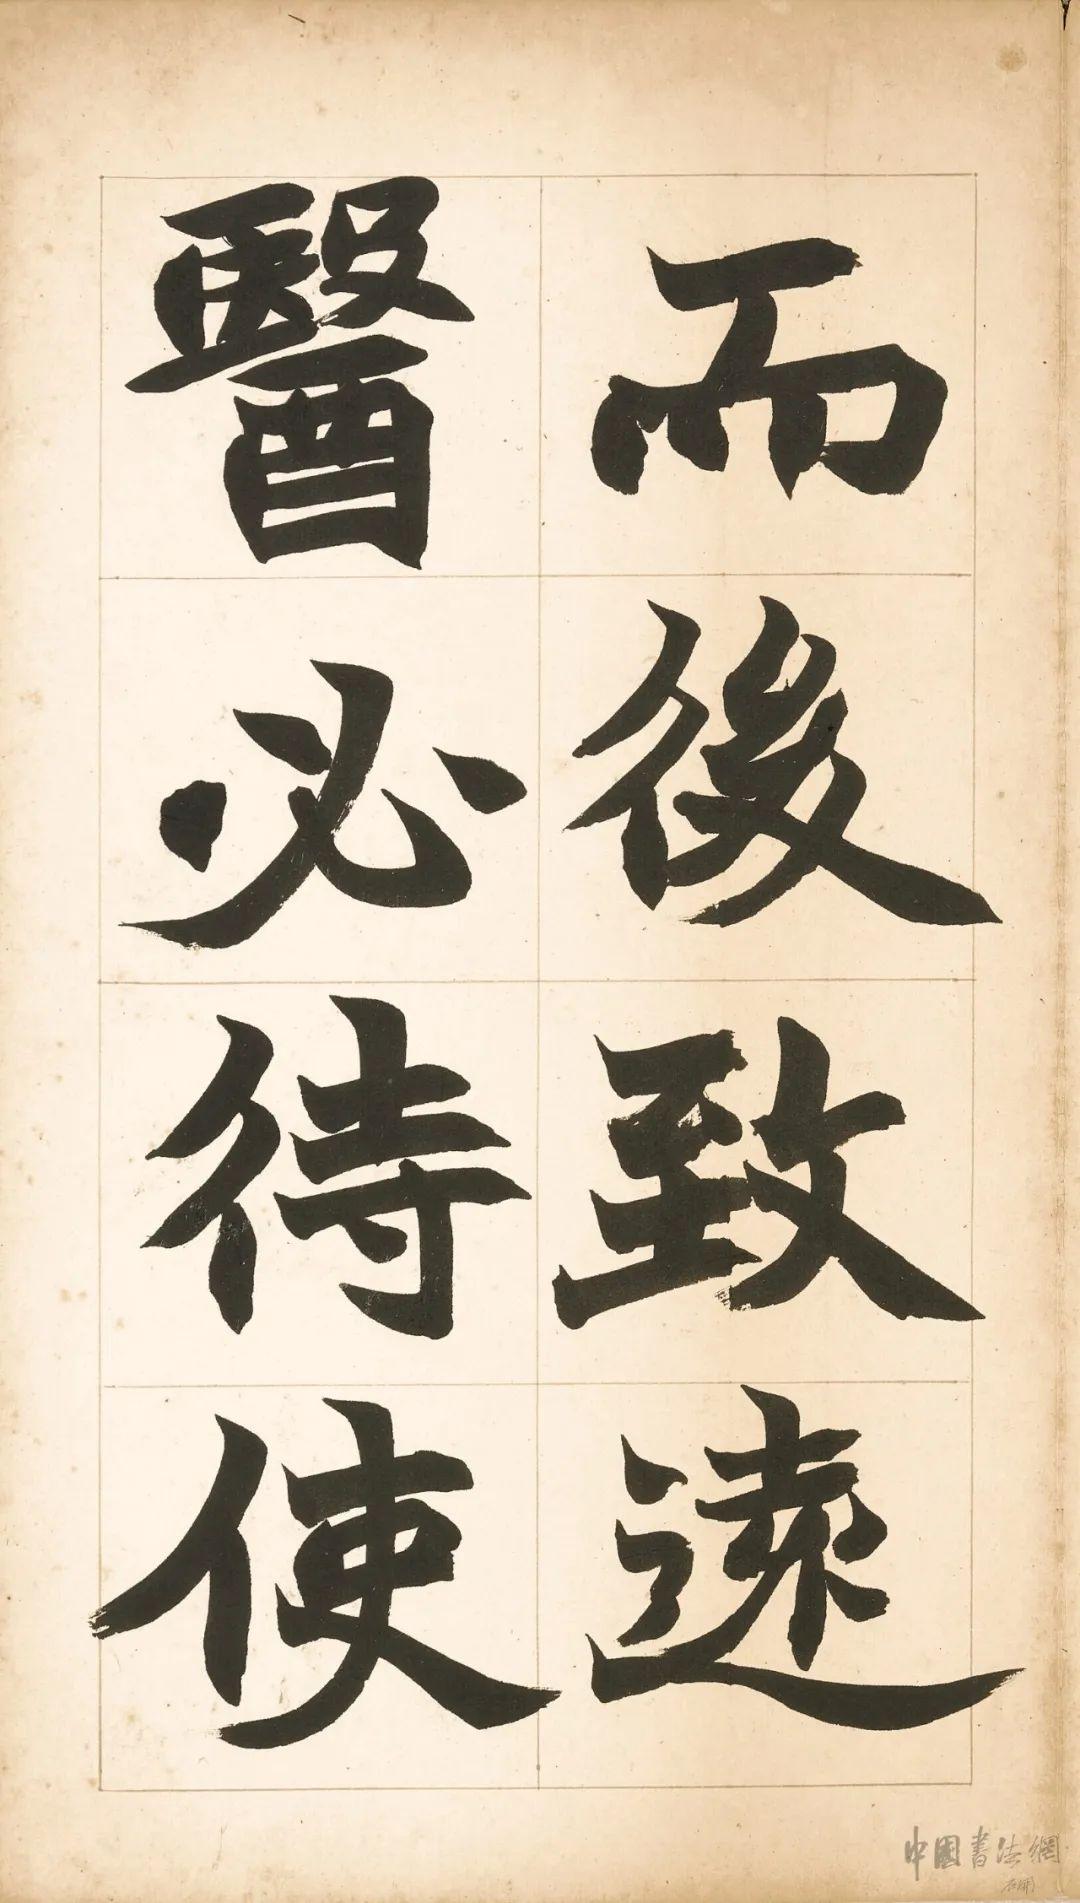 而後致遠
醫必待使
中國書法網